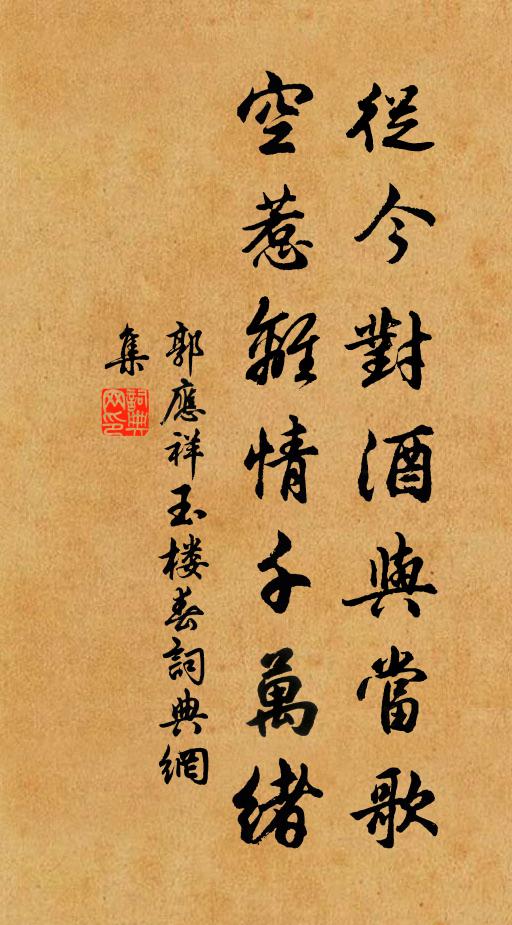 從今對酒與當歌
空惹離情千萬緒
郭應祥玉楼春詞典網
集
詞典網印